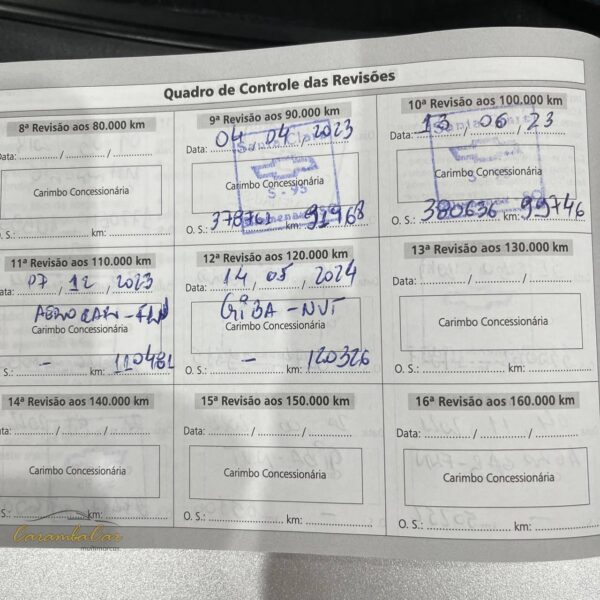 Quadro de Controle das Revisões
8ª Revisão aos 80.000 km
Data: ........./........./.........
Carimbo Concessionária
O. S.: ......... km: .........
9ª Revisão aos 90.000 km
Data: 04 / 04 / 2023
Santa Clara
Carimbo Concessionária
O. S.: 378761 km: 91968
10ª Revisão aos 100.000 km
Data: 13 / 06 / 23
Carimbo Concessionária
O. S.: 380636 km: 99746
11ª Revisão aos 110.000 km
Data: 07 / 12 / 2023
Carimbo Concessionária
S.: - km: 110481
12ª Revisão aos 120.000 km
Data: 14 / 05 / 2024
GIBA - NVT
Carimbo Concessionária
O. S.: - km: 120326
13ª Revisão aos 130.000 km
Data: ........./........./.........
Carimbo Concessionária
O. S.: ......... km: .........
14ª Revisão aos 140.000 km
ta: ........./........./.........
Carimbo Concessionária
S.: ......... km: .........
15ª Revisão aos 150.000 km
Data: ........./........./.........
Carimbo Concessionária
O. S.: ......... km: .........
16ª Revisão aos 160.000 km
Data: ........./........./.........
Carimbo Concessionária
O. S.: ......... km: .........
CarambaCar
multimarcas